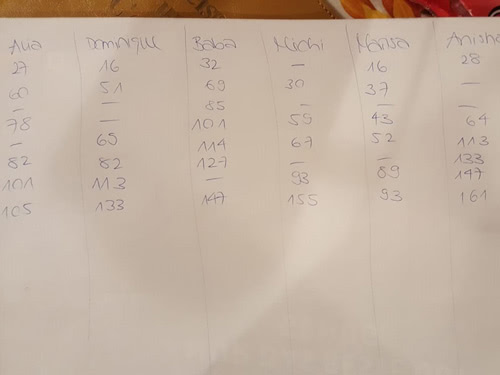 Ava Dominique Baba Michi Marisa Anisha
27 16 32 — 16 28
60 51 69 30 37 —
— — 85 — — —
78 — 101 59 43 64
— 65 114 67 52 113
82 82 127 — — 133
101 113 — 93 89 147
105 133 147 155 93 161